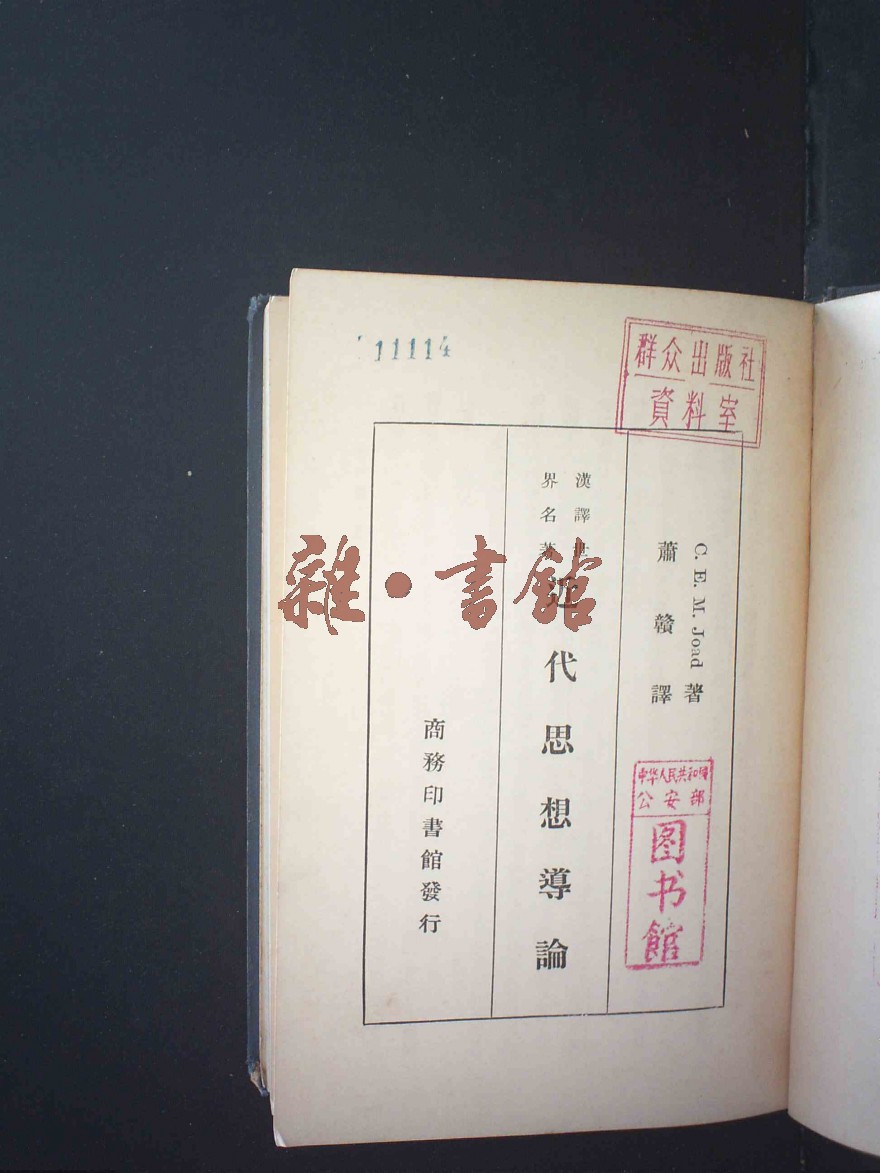 11114
群众出版社
資料室
C. E. M. Joad 著
蕭贛譯
漢譯世
界名著
近代思想導論
商務印書館發行
中华人民共和國
公安部
图书館
雜·書館